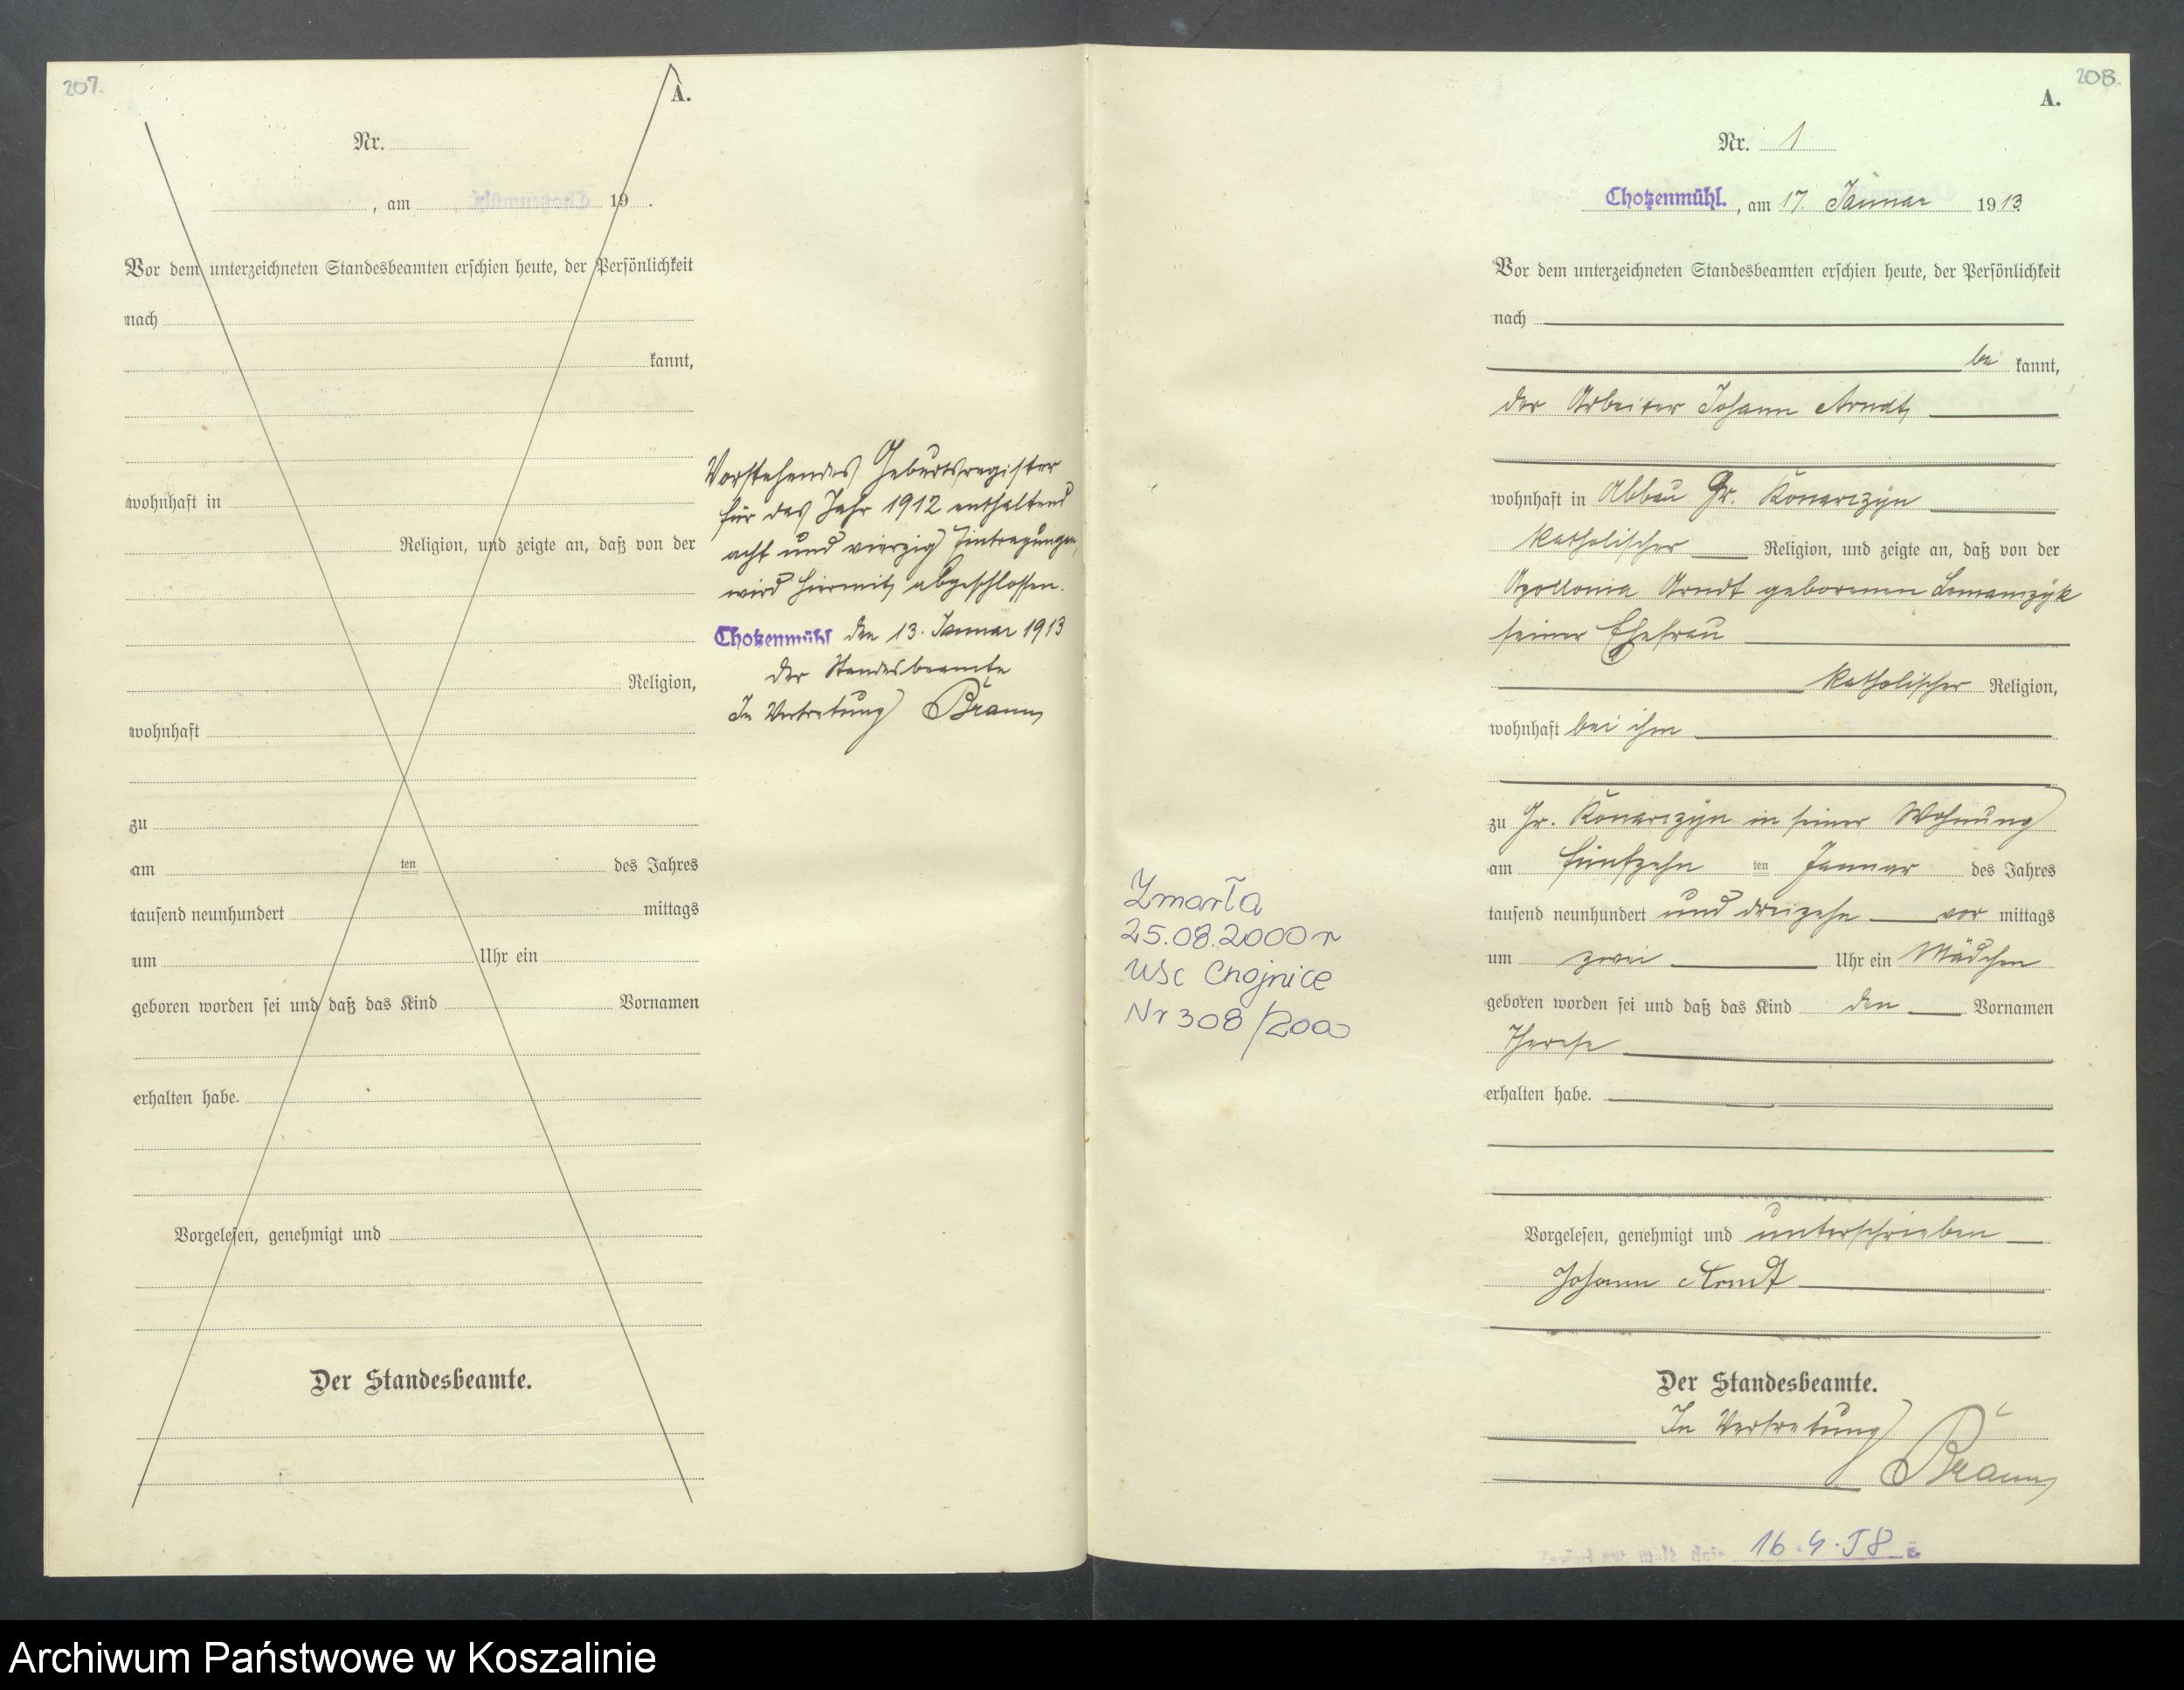 207.
A.
Nr.
, am 19 .
Vor dem unterzeichneten Standesbeamten erschien heute, der Persönlichkeit
nach
kannt,
wohnhaft in
Religion, und zeigte an, daß von der
Religion,
wohnhaft
zu
am ten des Jahres
tausend neunhundert mittags
um Uhr ein
geboren worden sei und daß das Kind Vornamen
erhalten habe.
Vorgelesen, genehmigt und
Der Standesbeamte.
Vorstehendes Geburtsregister
für das Jahr 1912 enthaltend
acht und vierzig Eintragungen,
wird hiermit abgeschlossen.
Chotzenmühl den 13. Januar 1913
Der Standesbeamte
In Vertretung
208.
A.
Nr. 1
Chotzenmühl. , am 17. Januar 1913
Vor dem unterzeichneten Standesbeamten erschien heute, der Persönlichkeit
nach
be kannt,
der Arbeiter Johann Arndt
wohnhaft in Abbau Gr. Konarczyn
katholischer Religion, und zeigte an, daß von der
Apollonia Arndt geborenen
seiner Ehefrau
katholischer Religion,
wohnhaft bei ihm
zu Gr. Konarczyn in seiner Wohnung
am fünfzehn ten Januar des Jahres
tausend neunhundert und dreizehn vor mittags
um zwei Uhr ein Mädchen
geboren worden sei und daß das Kind den Vornamen
Therese
erhalten habe.
Vorgelesen, genehmigt und unterschrieben
Johann Arndt
Der Standesbeamte.
In Vertretung
Zmarła
25.08.2000 r
USC Chojnice
Nr 308/2000
Archiwum Państwowe w Koszalinie